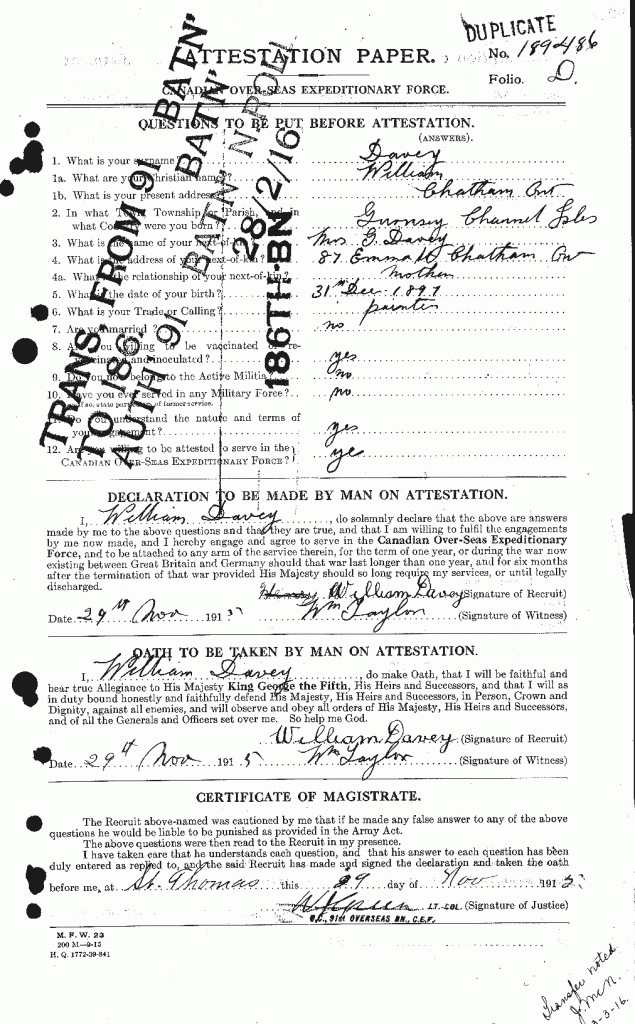 DUPLICATE
ATTESTATION PAPER.
No. 189486
Folio. D.
CANADIAN OVER-SEAS EXPEDITIONARY FORCE.
QUESTIONS TO BE PUT BEFORE ATTESTATION.
(ANSWERS).
1. What is your surname? Davey
1a. What are your Christian names? William
1b. What is your present address? Chatham Ont
2. In what Town, Township or Parish, and in
what Country were you born? Guernsey Channel Isles
3. What is the name of your next-of-kin? Mrs G. Davey
4. What is the address of your next-of-kin? 87 Emma St Chatham Ont
4a. What is the relationship of your next-of-kin? Mother
5. What is the date of your birth? 31st Dec 1897
6. What is your Trade or Calling? painter
7. Are you married? no
8. Are you willing to be vaccinated or re-
vaccinated and inoculated? yes
9. Do you now belong to the Active Militia? no
10. Have you ever served in any Military Force? no
If so, state particulars of former service.
11. Do you understand the nature and terms of
your engagement? yes
12. Are you willing to be attested to serve in the
CANADIAN OVER-SEAS EXPEDITIONARY FORCE? yes
TRANS. FROM 91 BATN'
TO 186 BATN'
AUTH' 91 BATN'
28/2/16
186TH BN
DECLARATION TO BE MADE BY MAN ON ATTESTATION.
I, William Davey, do solemnly declare that the above are answers
made by me to the above questions and that they are true, and that I am willing to fulfil the engagements
by me now made, and I hereby engage and agree to serve in the Canadian Over-Seas Expeditionary
Force, and to be attached to any arm of the service therein, for the term of one year, or during the war now
existing between Great Britain and Germany should that war last longer than one year, and for six months
after the termination of that war provided His Majesty should so long require my services, or until legally
discharged.
William Davey (Signature of Recruit)
Date 29th Nov 1915 Wm Taylor (Signature of Witness)
OATH TO BE TAKEN BY MAN ON ATTESTATION.
I, William Davey, do make Oath, that I will be faithful and
bear true Allegiance to His Majesty King George the Fifth, His Heirs and Successors, and that I will as
in duty bound honestly and faithfully defend His Majesty, His Heirs and Successors, in Person, Crown and
Dignity, against all enemies, and will observe and obey all orders of His Majesty, His Heirs and Successors,
and of all the Generals and Officers set over me. So help me God.
William Davey (Signature of Recruit)
Date 29th Nov 1915 Wm Taylor (Signature of Witness)
CERTIFICATE OF MAGISTRATE.
The Recruit above-named was cautioned by me that if he made any false answer to any of the above
questions he would be liable to be punished as provided in the Army Act.
The above questions were then read to the Recruit in my presence.
I have taken care that he understands each question, and that his answer to each question has been
duly entered as replied to, and the said Recruit has made and signed the declaration and taken the oath
before me, at St. Thomas this 29 day of Nov 1915
LT.-COL. (Signature of Justice)
O.C. 91ST OVERSEAS BN., C.E.F.
M. F. W. 23
200 M—9-15
H. Q. 1772-39-841
Transfer noted
J. McN.